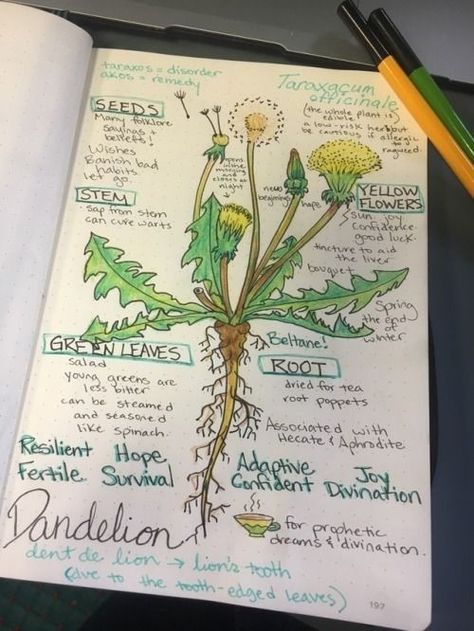 taraxos = disorder
akos = remedy
Taraxacum
officinale
(the whole plant is
edible
a low-risk herb but
be cautious if allergic
to
ragweed.
SEEDS
Many folklore
sayings +
beliefs!
Wishes
Banish bad
habits
let go
STEM
sap from stem
can cure warts
opens
in the
morning
and
closes at
night
new
beginnings
hope
YELLOW
FLOWERS
sun joy
confidence
good luck
tincture to aid
the liver
bouquet
Spring
the end
of
winter
Beltane!
GREEN LEAVES
salad
young greens are
less bitter
can be steamed
and seasoned
like spinach.
ROOT
dried for tea
root poppets
Associated with
Hecate & Aphrodite
Resilient Hope
Fertile Survival
Adaptive Joy
Confident Divination
Dandelion
for prophetic
dreams & divination.
dent de lion → lion's tooth
(due to the tooth-edged leaves)
197